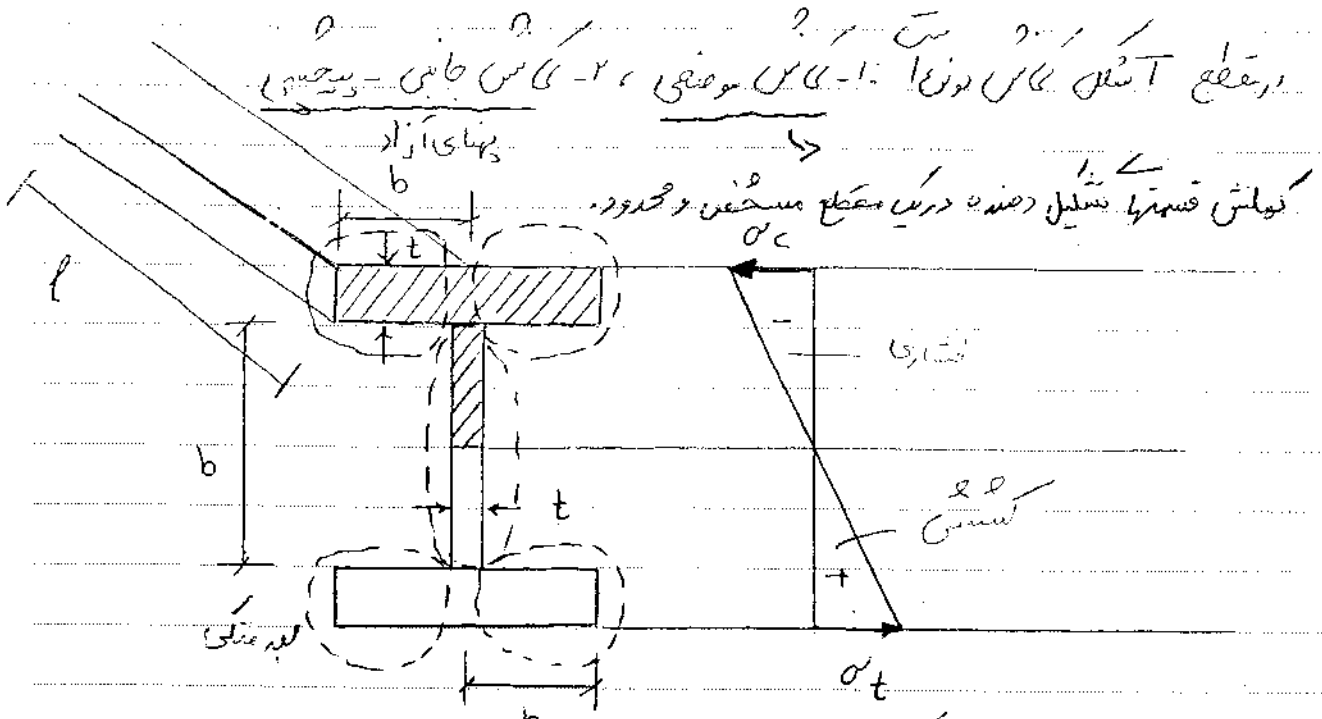 در مقطع I شکل کمانش بودن: ۱- کمانش موضعی ، ۲- کمانش جانبی - پیچشی
پهنای آزاد
کمانش قسمتهای تشکیل دهنده در یک مقطع مشخص و محدود.
b
t
σc
l
-
فشاری
b
t
کششی
+
لبه متکی
σt
b